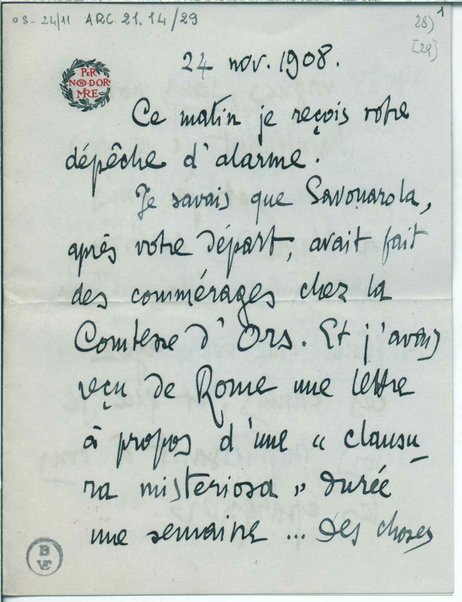 08-24/11 ARC. 21. 14/29
28)
[29]
PER
NON DOR
MIRE
24 nov. 1908.
Ce matin je reçois votre
dépêche d'alarme.
Je savais que Savonarola,
après votre départ, avait fait
des commérages chez la
Comtesse d'Ors. Et j'avais
reçu de Rome une lettre
à propos d'une « clausu
ra misteriosa » durée
une semaine ... Des choses
B
VE